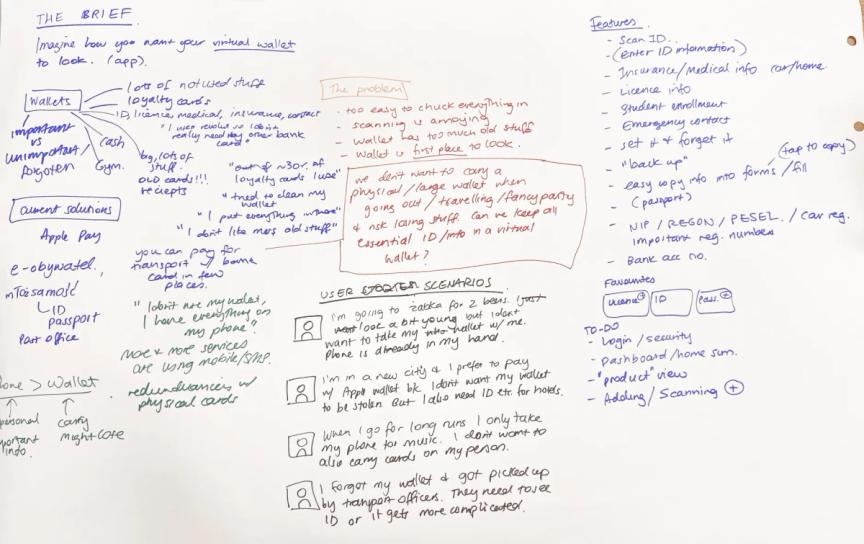 THE BRIEF
Imagine how you want your virtual wallet
to look. (app).
Wallets
important
vs
unimportant/
forgotten
lots of not used stuff
loyalty cards
ID, licence, medical, insurance, contact
"I use revolut so I don't
really need any other bank
card"
cash
Gym.
big, lots of
stuff.
OLD cards!!!
reciepts
"out of ~30 of
loyalty cards I use"
"tried to clean my
wallet
"I put everything in there"
"I don't like mess old stuff"
current solutions
Apple Pay
e-obywatel,
mTożsamość
ID
passport
Post office
you can pay for
transport w/ bank
card in few
places.
"I don't use my wallet,
I have everything on
my phone".
more & more services
are using mobile/SMS.
redundancies w/
physical cards
one > Wallet
personal
portant
info.
carry
might lose
The problem
- too easy to chuck everything in
- scanning is annoying
- wallet has too much old stuff
- wallet is first place to look.
We don't want to carry a
physical/large wallet when
going out/travelling/fancy party
& risk losing stuff. Can we keep all
essential ID/info in a virtual
wallet?
USER SCENARIOS
I'm going to żabka for 2 beers. I just
look a bit young but I don't
want to take my wallet w/ me.
Phone is already in my hand.
I'm in a new city & I prefer to pay
w/ Apple wallet b/c I don't want my wallet
to be stolen. But I also need ID etc. for hotels.
When I go for long runs I only take
my phone for music. I don't want to
also carry cards on my person.
I forgot my wallet & got picked up
by transport officers. They need to see
ID or it gets more complicated.
Features
- Scan ID.
- (Enter ID information)
- Insurance/Medical info car/home
- Licence info
- Student enrollment
- Emergency contact
- set it & forget it
- "back up"
(tap to copy)
- easy copy info into forms/fill
- (passport)
- NIP / REGON / PESEL. / Car reg.
important reg. numbers
- Bank acc no.
Favourites
ID
Pass. +
TO-DO
- Login / security
- Dashboard/home sum.
- "product" view
- Adding / Scanning +